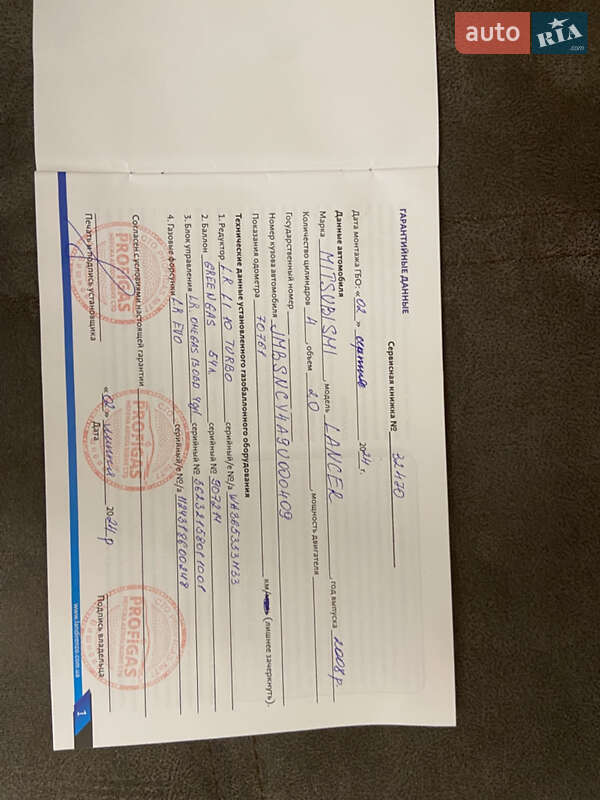 auto RIA .com
ГАРАНТИЙНЫЕ ДАННЫЕ
Сервисная книжка № 32470
Дата монтажа ГБО: «02» 2024 г.
Данные автомобиля
Марка MITSUBISHI, модель LANCER, год выпуска 2008р
Количество цилиндров 4, объем 2.0, мощность двигателя
Государственный номер
Номер кузова автомобиля JMBSNCY4A9U000409
Показания одометра 70761 км/ (лишнее зачеркнуть).
Технические данные установленного газобаллонного оборудования
1. Редуктор LR LI 10 TURBO серийный/е №/а
2. Баллон GREENGAS 54л серийный № 907214
3. Блок управления LR OMEGAS серийный №
4. Газовые форсунки LR EVO серийный/е №/а
Согласен с условиями настоящей гарантии
«02» 2024 р
Печать и подпись установщика Дата Подпись владельца
PROFIGAS
PROFIGAS
PROFIGAS
www.landirenzo.com.ua
1